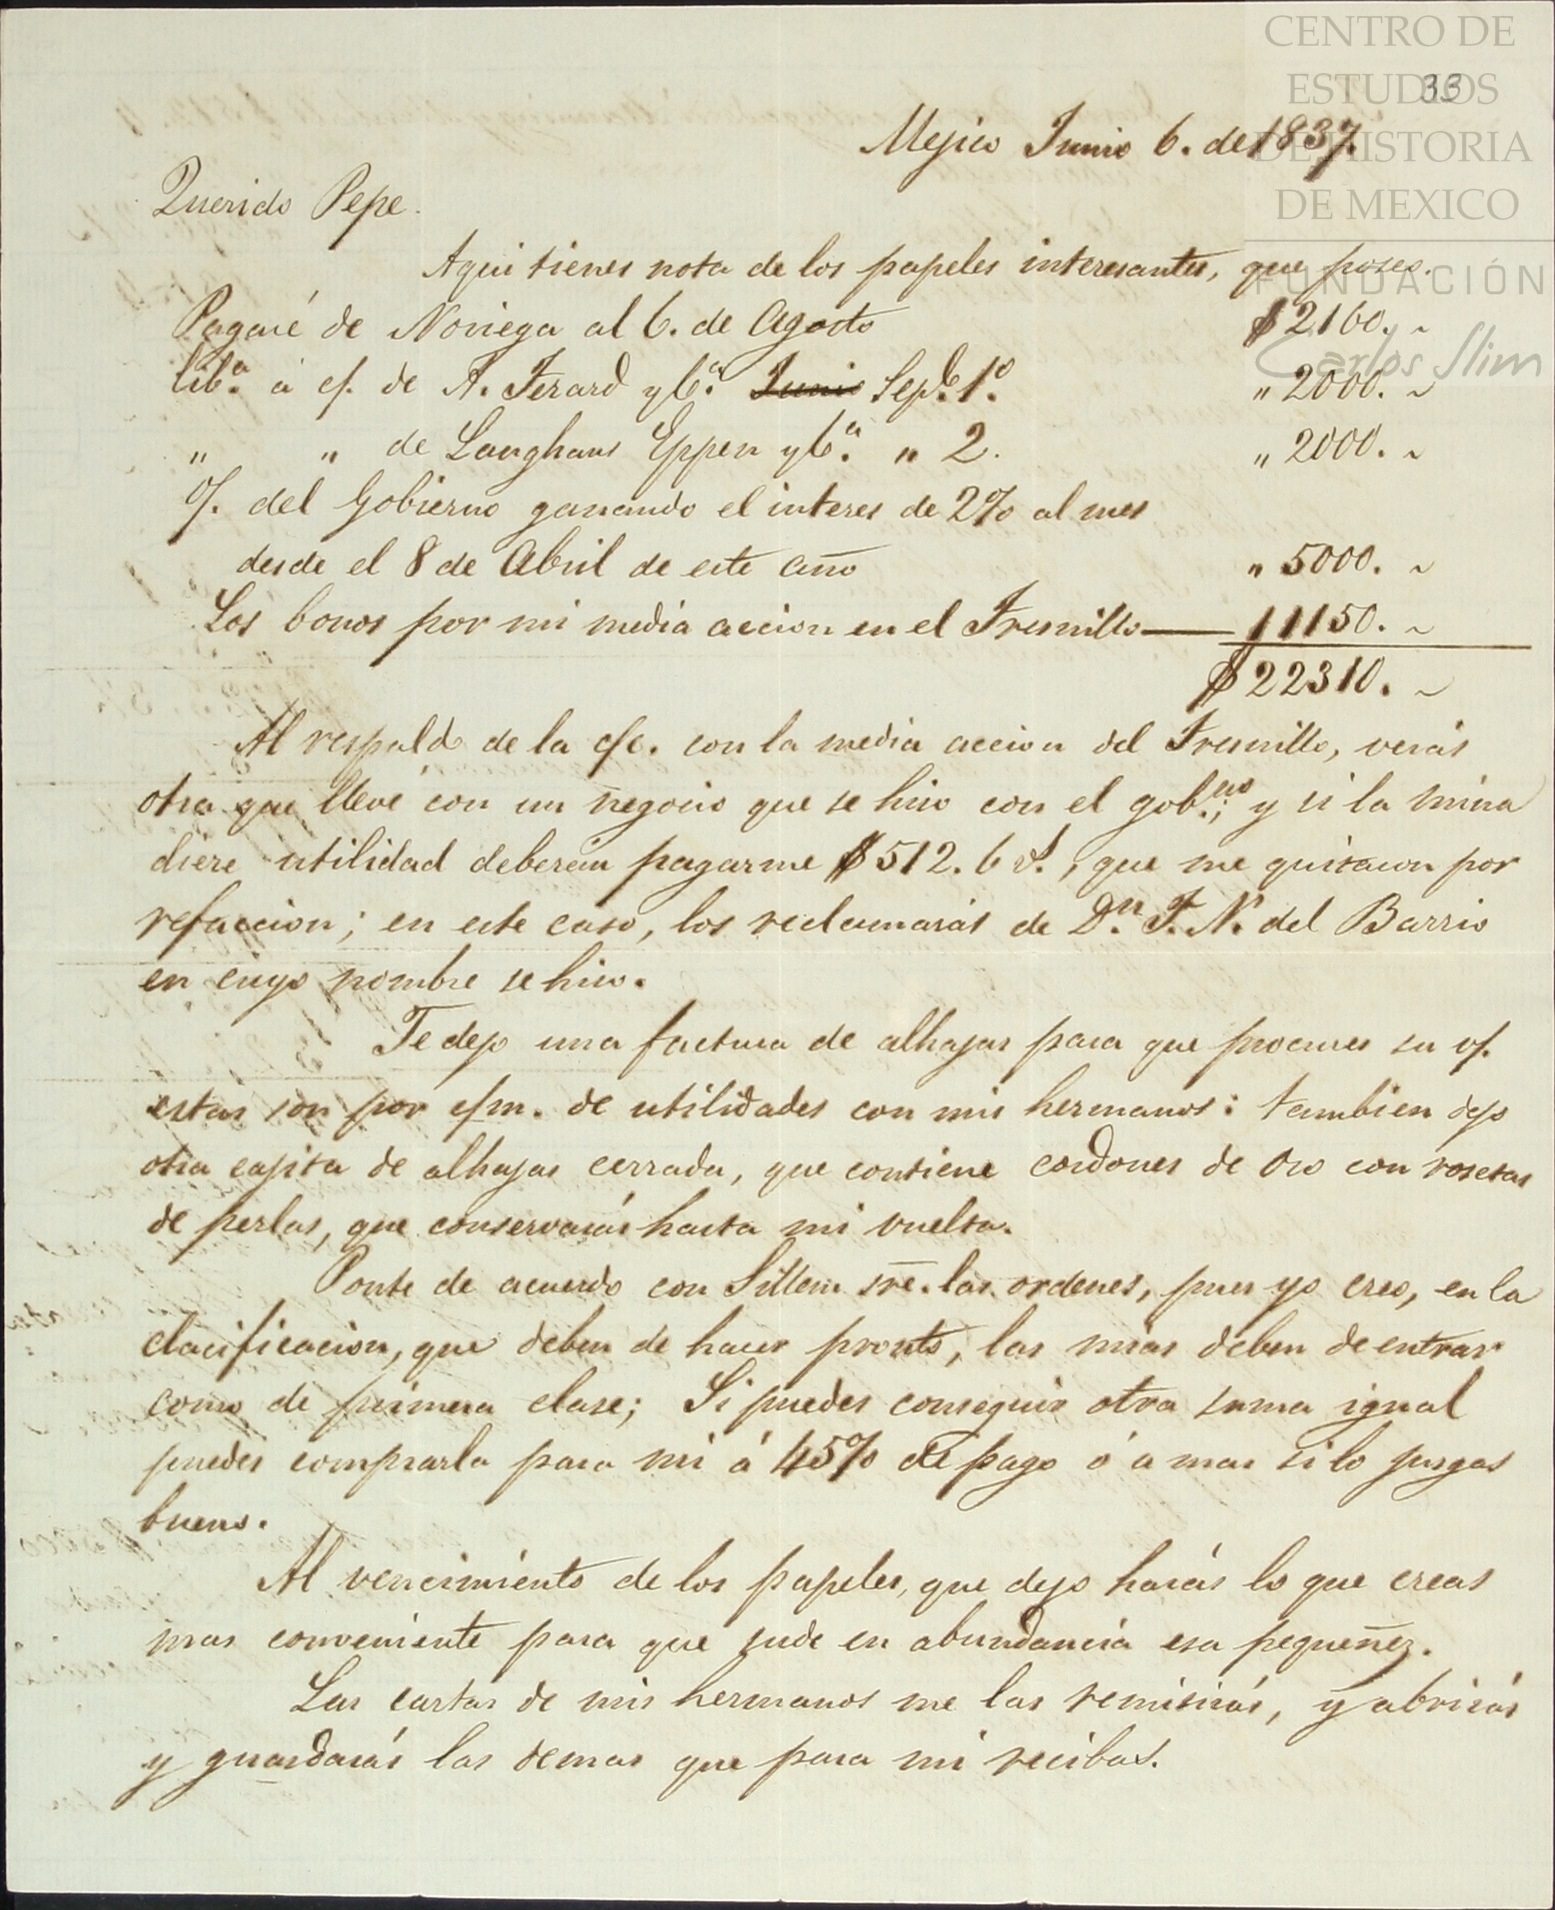 CENTRO DE
ESTUDIOS
DE HISTORIA
DE MEXICO
FUNDACIÓN
Carlos Slim
33
Mejico Junio 6. de 1837.
Querido Pepe.
Aqui tienes nota de los papeles interesantes, que poseo.
Pagaré de Noriega al 6. de Agosto $2160. ~
Libᵃ. à c/. de A. Ferard y Cᵃ. Junio Sepᵇ. 1º. " 2000. ~
" " de Langhans Eppen y Cᵃ. " 2. " 2000. ~
O/. del Gobierno ganando el interes de 2% al mes
desde el 8 de Abril de este año " 5000. ~
Los bonos por mi media accion en el Fresnillo — 11150. ~
$22310. ~
Al respaldo de la c/c. con la media accion del Fresnillo, verás
otra que llevé con un negocio que se hiso con el gob.ⁿᵒ; y si la mina
diere utilidad deberán pagarme $512. 6 r^s., que me quitaron por
refaccion; en este caso, los reclamarás de Dⁿ. F. N. del Barrio
en cuyo nombre se hiso.
Te dejo una factura de alhajas para que procures su v/.
estas son por c/m. de utilidades con mis hermanos: tambien dejo
otra cajita de alhajas cerrada, que contiene cordones de oro con rosetas
de perlas, que conservarás hasta mi vuelta.
Ponte de acuerdo con Sillem sr̄e. las ordenes, pues yo creo, en la
clacificacion, que deben de hacer pronto, las mias deben de entrar
como de primera clase; Si puedes conseguir otra suma igual
puedes comprarla para mi á 45% de pago ó a mas si lo jusgas
bueno.
Al vencimiento de los papeles, que dejo harás lo que creas
mas conveniente para que sude en abundancia esa pequeñez.
Las cartas de mis hermanos me las remitirás, y abrirás
y guardarás las demas que para mi recibas.